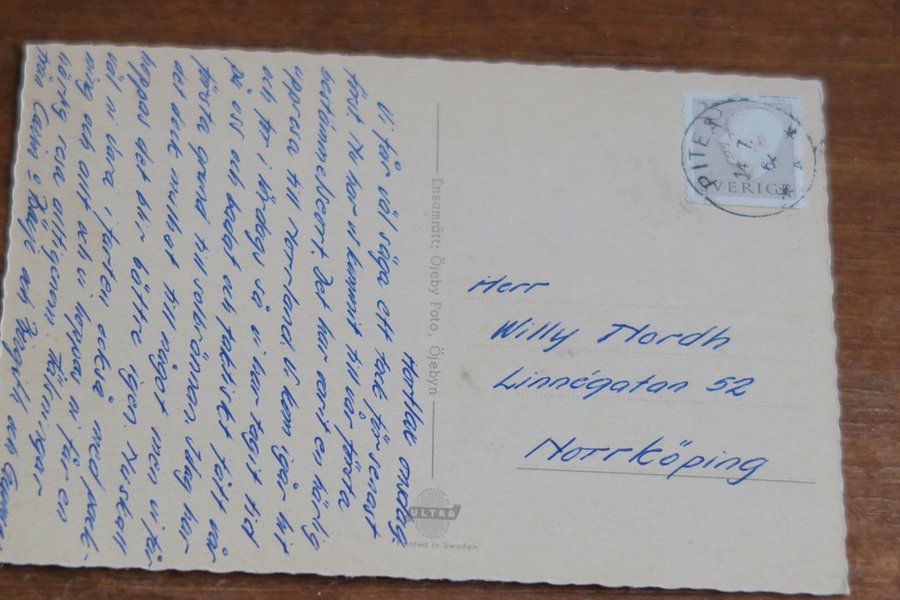 Hortlax onsdag.
Vi får väl säga ett tack för senast
först. Nu har vi kommit till vår första
bestämmelseort. Det har varit en härlig
uppresa till Norrland. Vi kom igår hit
och för i lördags så vi har tagit tid
på oss och badat och faktiskt fått vår
första grund till solbrännan. Idag har
det inte mulnat till något men vi får
hoppas det blir bättre igen. Nu skall
väl vi vara i farten också med
ning och allt och vi hoppas vi får en
härlig resa alltigenom. Hälsningar
från Carin o och Birgitta och Gunnar
Ensamrätt: Öjeby Foto, Öjebyn
ULTRA
Printed in Sweden
PITEÅ
14.7.62
SVERIGE
Herr
Willy Nordh
Linnégatan 52
Norrköping